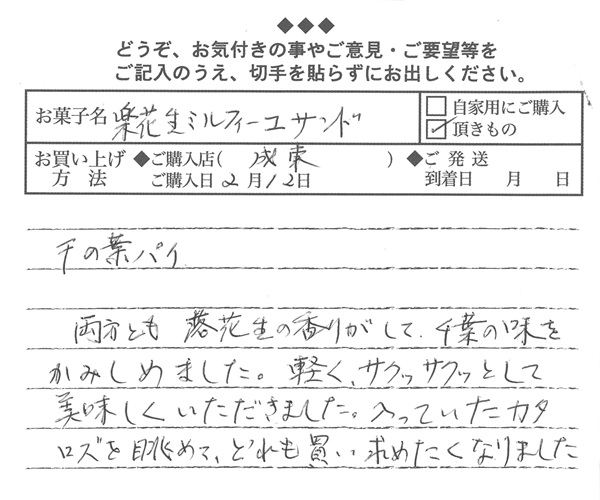 ◆◆◆
どうぞ、お気付きの事やご意見・ご要望等を
ご記入のうえ、切手を貼らずにお出しください。
お菓子名 楽花生ミルフィーユサンド
□自家用にご購入
☑頂きもの
お買い上げ方法 ◆ご購入店(成東) ◆ご発送
ご購入日 2月12日 到着日 月 日
千の葉パイ
両方とも 落花生の香りがして、千葉の味を
かみしめました。軽く、サクッサクッとして
美味しくいただきました。入っていたカタ
ロズを眺めて、どれも買い求めたくなりました